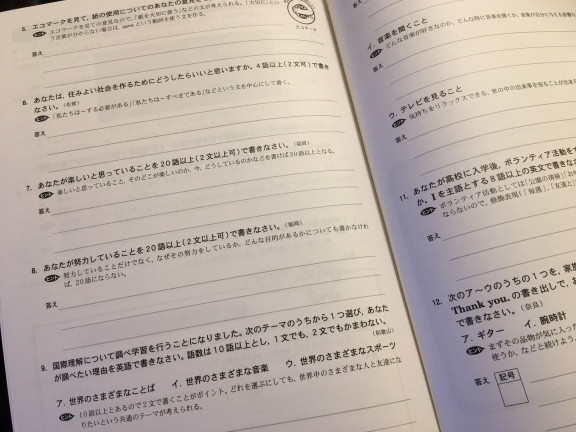 5. エコマークを見て、紙の使用についてのあなたの意見を
ヒント エコマークを見ての意見なので、「紙を大切に使う」などの文が考えられる。「大切に」とい
う言葉が分からない場合は、saveという動詞を使う文を作る。
エコマーク
答え
6. あなたは、住みよい社会を作るためにどうしたらいいと思いますか。4語以上(2文可)で書き
なさい。(佐賀)
ヒント 「私たちは～する必要がある」「私たちは～すべきである」などという文を中心にして書く。
答え
7. あなたが楽しいと思っていることを20語以上(2文以上可)で書きなさい。(福岡)
ヒント 楽しいと思っていること、そのどこが楽しいのか、今、どうしているのかなどを書けば20語以上となる。
答え
8. あなたが努力していることを20語以上(2文以上可)で書きなさい。(福岡)
ヒント 努力していることだけでなく、なぜその努力をしているか、どんな目的があるかについても書かなけれ
ば、20語にならない。
答え
9. 国際理解について調べ学習を行うことになりました。次のテーマのうちから1つ選び、あなた
が調べたい理由を英語で書きなさい。語数は10語以上とし、1文でも、2文でもかまわない。
(和歌山)
ア. 世界のさまざまなことば イ. 世界のさまざまな音楽 ウ. 世界のさまざまなスポーツ
ヒント 10語以上とあるので2文で書くことがポイント。どれを選ぶにしても、世界中のさまざまな人と友達にな
りたいという共通のテーマが考えられる。
イ. 音楽を聞くこと
ヒント どんな音楽が好きなのか、どんな時に音楽を聞くか、音楽が自分に与える影響
答え
ウ. テレビを見ること
ヒント 気持ちをリラックスできる、世の中の出来事を知ることが出来
答え
11. あなたが高校に入学後、ボランティア活動を
か。Iを主語とする8語以上の英文で書きな
ヒント ボランティア活動としては「公園の清掃」「お
ならないので、修飾表現(「毎週」、「友達と
答え
12. 次のア～ウのうちの1つを、家族
Thank you. の書き出しで、お
で書きなさい。(奈良)
ア. ギター イ. 腕時計
ヒント まずその品物が気に入っ
使うか、などと続けよう。
答え 記号